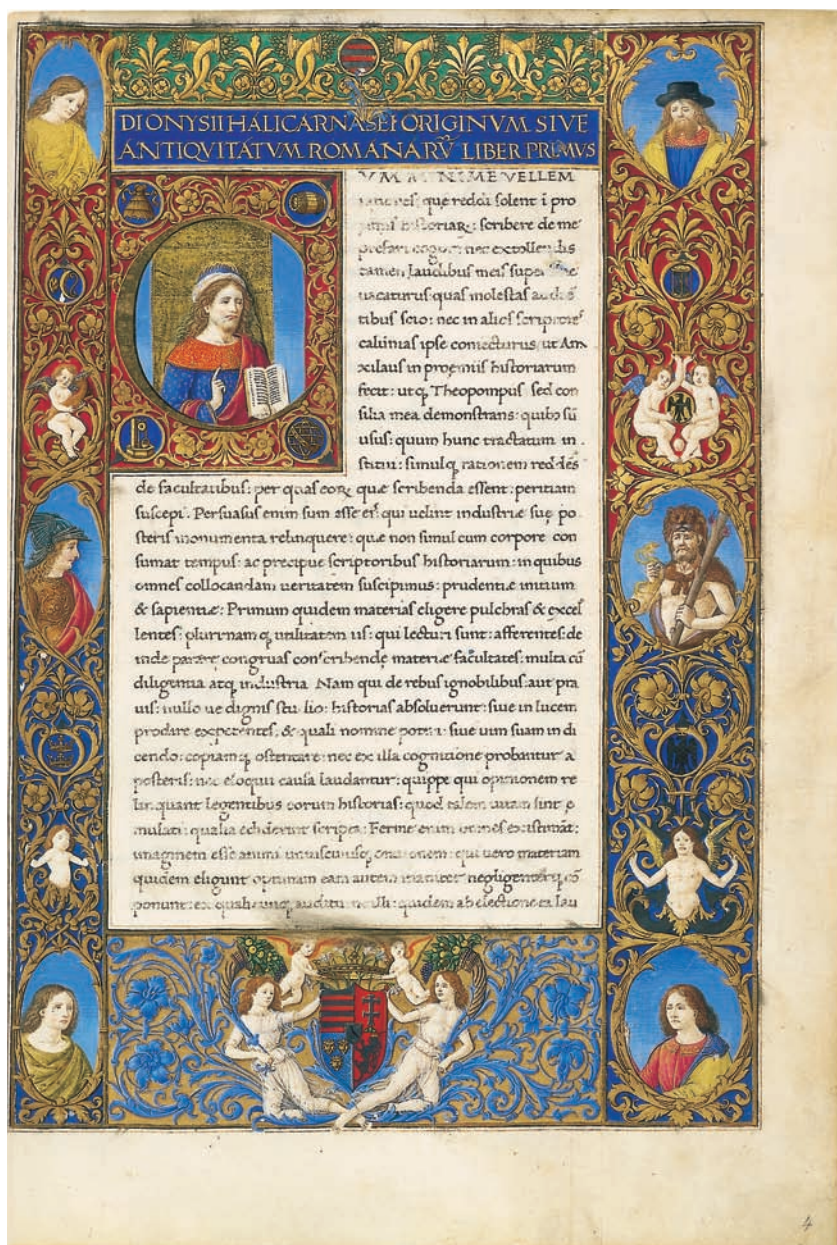 DIONYSII HALICARNASEI ORIGINVM SIVE
ANTIQVITATVM ROMANARV LIBER PRIMVS
VELLEM
que reddi solent i pro
scribere de me
nec extollendis
tamen laudibus meis
uacaturus quas molestas
tibus scio: nec in alios scriptores
calūnias ipse coniecturus ut An
xilaus in proemiis historiarum
fecit: utq Theopompus sed con
silia mea demonstrans: quibꝰ sū
usus: quum hunc tractatum in
stitui: simulq rationem reddēs
de facultatibus: per quas eorꝝ quæ scribenda essent: peritiam
suscepi. Persuasus enim sum esse eis qui uelint industriæ suę po
steris monumenta relinquere: quæ non simul cum corpore con
sumat tempus: ac precipue scriptoribus historiarum: in quibus
omnes collocandam ueritatem suscipimus: prudentiæ initium
& sapientiæ: Primum quidem materias eligere pulchras & excel
lentes: plurimam q utilitatem iis: qui lecturi sunt: afferentes: de
inde parare congruas conscribendę materiæ facultates: multa cū
diligentia atq industria. Nam qui de rebus ignobilibus: aut pra
uis: nullo ue dignis studio: historias absoluerunt: siue in lucem
prodire expetentes, & quali nomine potiri: siue uim suam in di
cendo: copiamq ostentare: nec ex illa cognitione probantur a
posteris: nec eloqui causa laudantur: quippe qui opinionem re
linquant legentibus eorum historias: quod talem uitam sint ę
mulati: qualia ediderunt scripta: Ferme enim omnes existimāt:
imaginem esse animi uniuscuiusq orationem: qui uero materiam
quidem eligunt optimam eam autem negligenterq cō
ponunt: ex auditu quidem ab electione
4